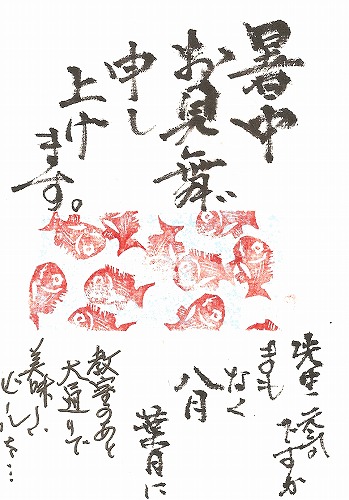 暑中
お見舞
申し
上げ
ます。
先生 元気ですか
まも
なく
八月
葉月に
教室のあと
大通りで
美味しい
ビールを…